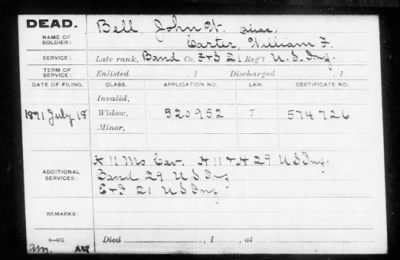 DEAD. Bell, John W. alias,
NAME OF SOLDIER: Carter, William F.
SERVICE: Late rank, Band Co. F&S 21 Reg't U.S. Inf.
TERM OF SERVICE: Enlisted , 1 Discharged , 1
DATE OF FILING. CLASS. APPLICATION NO. LAW. CERTIFICATE NO.
Invalid,
1891 July 18 Widow, 520952 I 574726
Minor,
A 11 Mo. Cav. A 11 & H 29 U S Inf.
ADDITIONAL SERVICES: Band 29 U S Inf
F&S 21 U S Inf
REMARKS:
Died , 1 , at